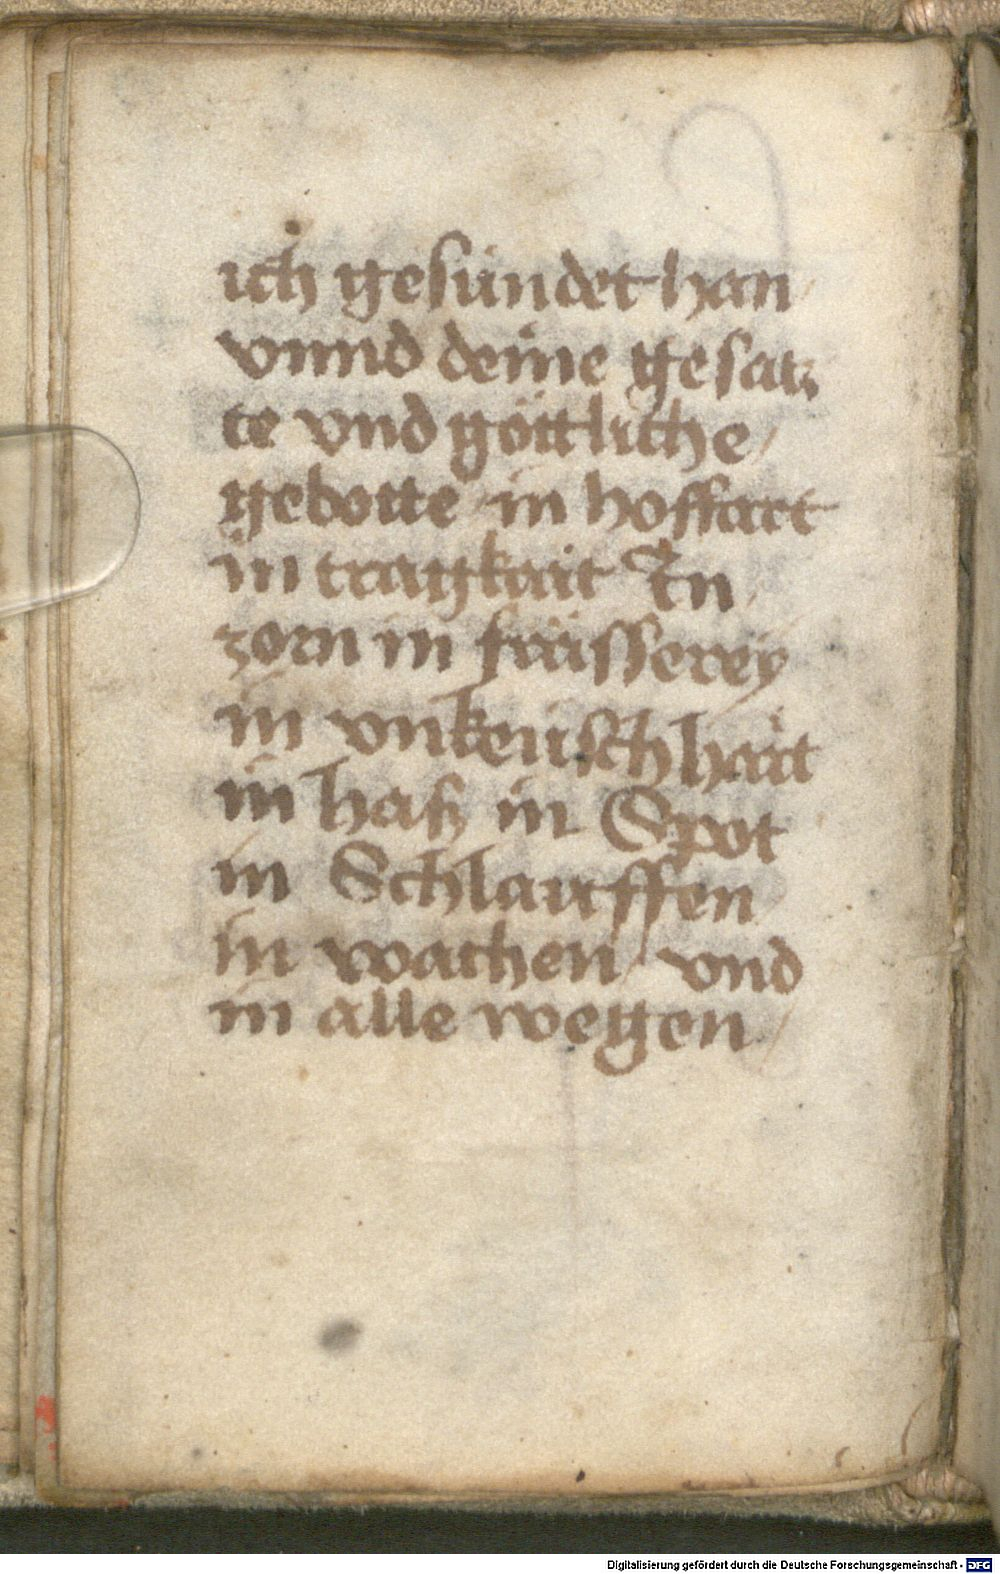 ich gesündet han
vnnd deine gesatz
te vnd göttliche
gebotte in hoffart
in tragkait In
zorn in frässerey
in vnkeuschhait
in haß in Spot
in Schlauffen
in wachen vnd
in alle wegen
Digitalisierung gefördert durch die Deutsche Forschungsgemeinschaft - DFG